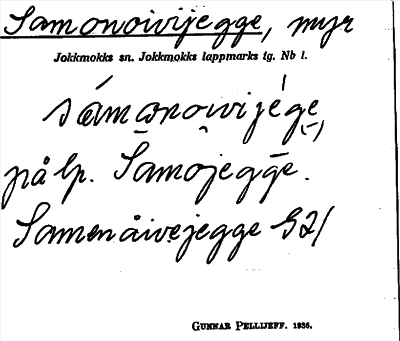 Samonoivijegge, myr
Jokkmokks sn. Jokkmokks lappmarks tg. Nb l.
sámonowijége
(-)
på lp. Samojegge.
Samenåivejegge S2/
GUNNAR PELLIJEFF. 1936.